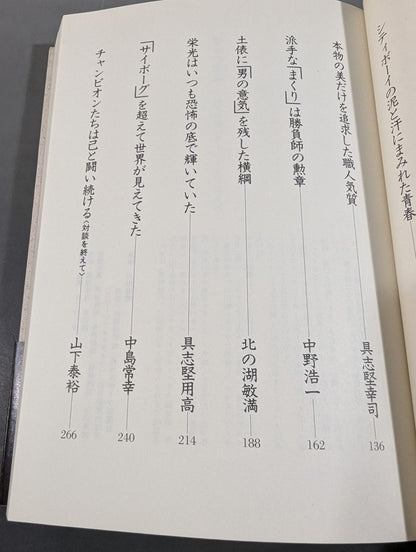 シティボーイの泥と汗にまみれた青春
本物の美だけを追求した職人気質――具志堅幸司 136
派手な「まくり」は勝負師の勲章――中野浩一――162
土俵に「男の意気」を残した横綱――北の湖敏満――188
栄光はいつも恐怖の底で輝いていた――具志堅用高――214
「サイボーグ」を超えて世界が見えてきた――中島常幸――240
チャンピオンたちは己と闘い続ける〈対談を終えて〉――山下泰裕――266